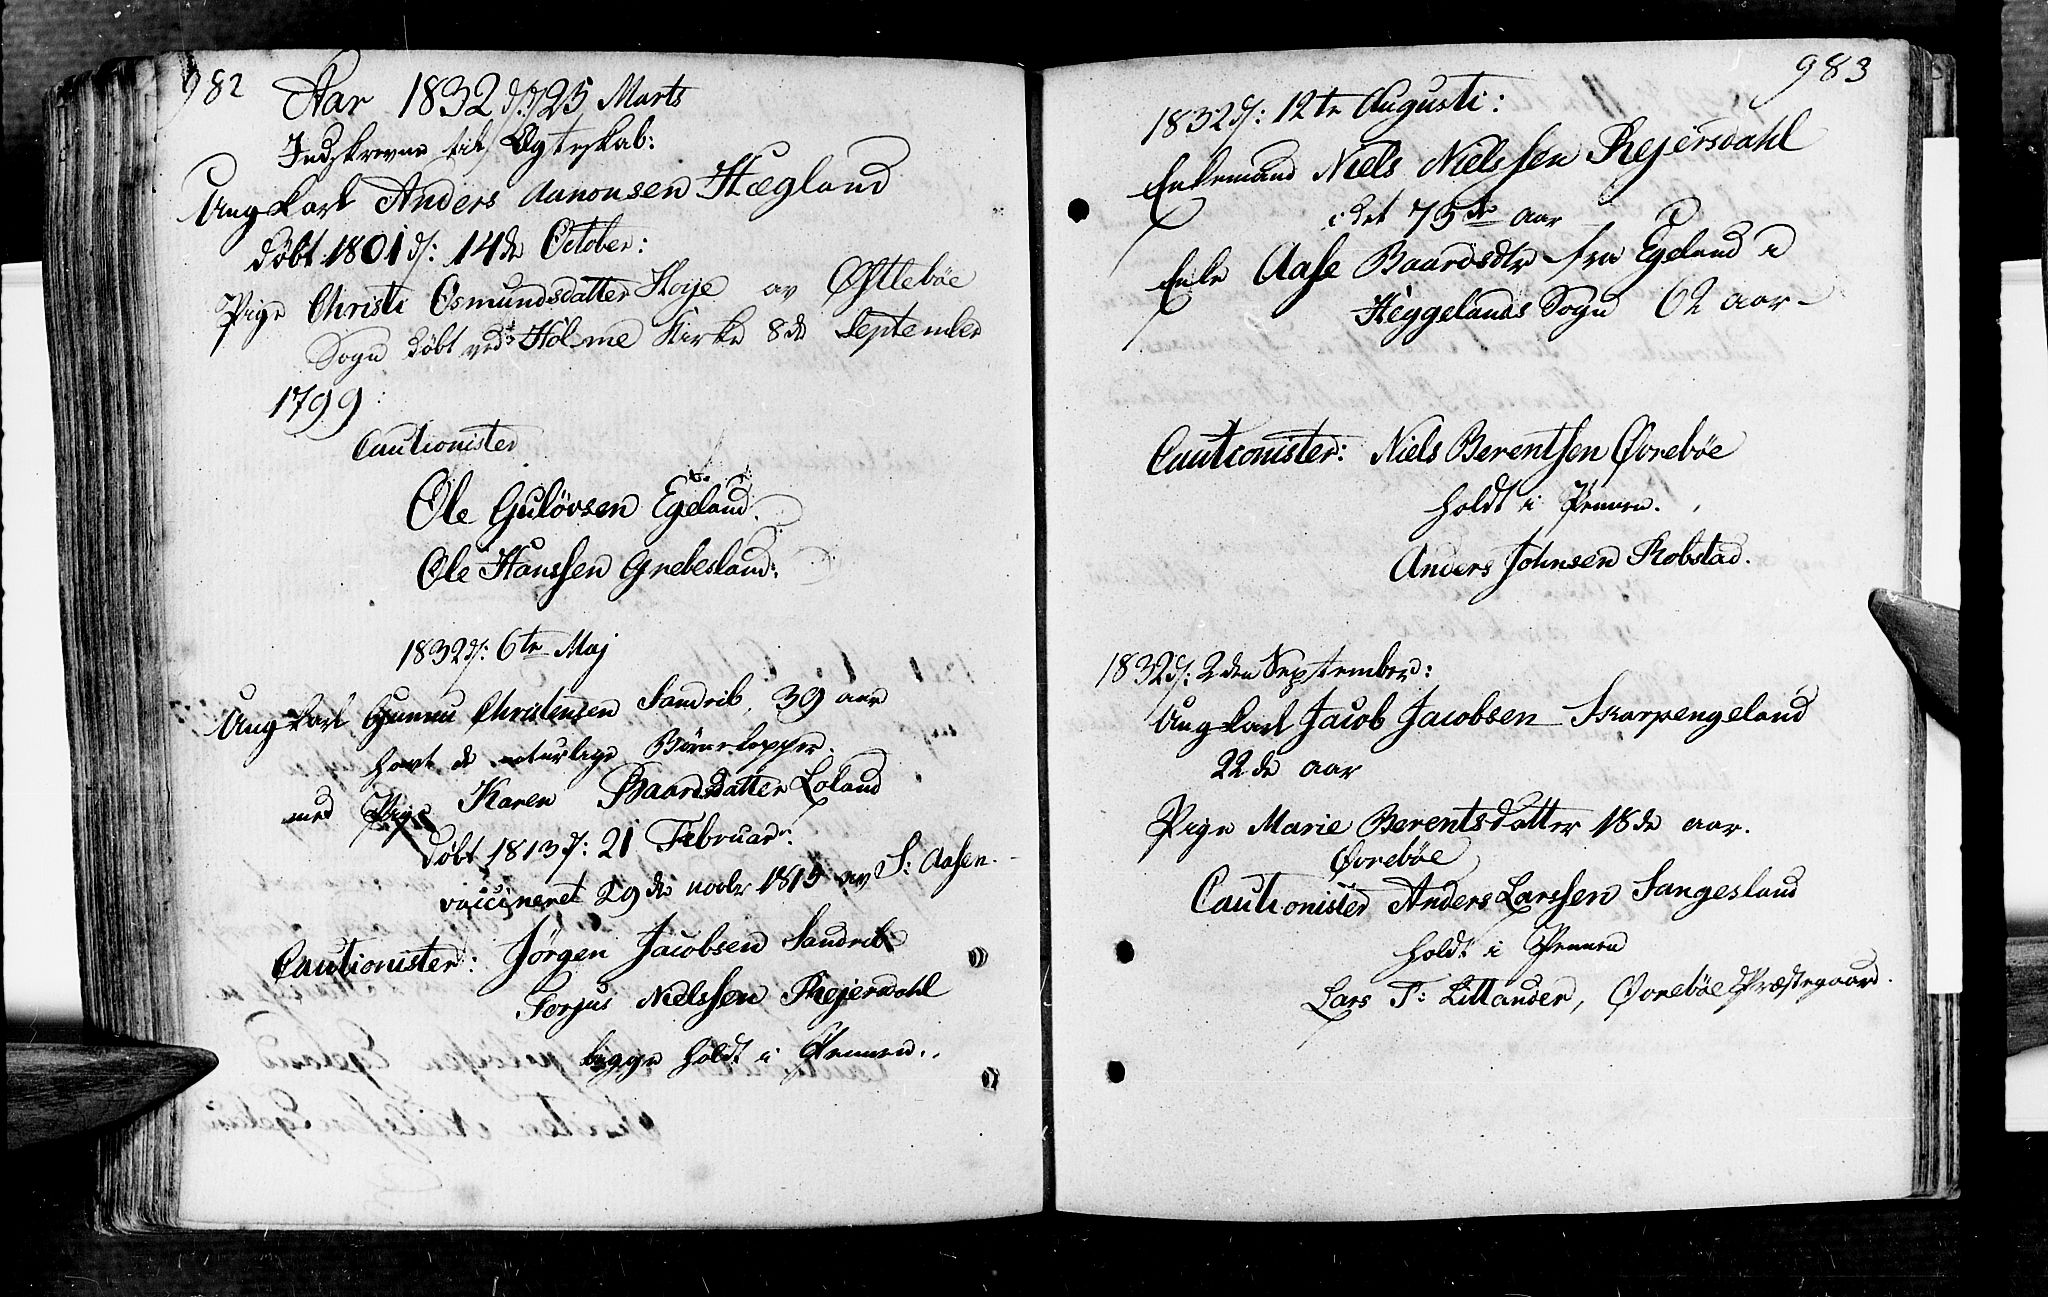 982
Aar 1832 d: 25 Marts
Indskrevne til Ægteskab:
Ung Karl Anders Aanonsen Hægland
døbt 1801 d: 14de October:
Pige Christi Osmundsdatter Høije av Øslebøe
Sogn døbt ved Holme Kirke 8de September
1799
Cautionister
Ole Guløvsen Egeland.
Ole Hanssen Grebesland.
1832 d: 6te Maj
Ung Karl Gunnu Christensen Sandrib, 39 aar
havt de naturlige Børnekopper.
med Pige Karen Baardsdatter Loland
døbt 1813 d: 21 Februar.
vaccineret 29de novbr 1815 av S: Aasen.
Cautionister: Jørgen Jacobsen Sandrib
Torjus Nielssen Rejersdahl
begge holdt i Pennen.
983
1832 d: 12te Augusti:
Enkemand Niels Nielssen Rejersdahl
i det 75de Aar
Enke Aase Baardsdtr fra Egeland i
Heggelands Sogn 62 aar
Cautionister: Niels Berentsen Øvrebøe
holdt i Pennen.
Anders Johnsen Robstad.
1832 d: 2den September:
Ung Karl Jacob Jacobsen Skarpengeland
22de aar
Pige Marie Berentsdatter 18de aar.
Øvrebøe
Cautionister Anders Larssen Sangesland
holdt i Pennen
Lars T: Littander, Øvrebøe Præstegaard.